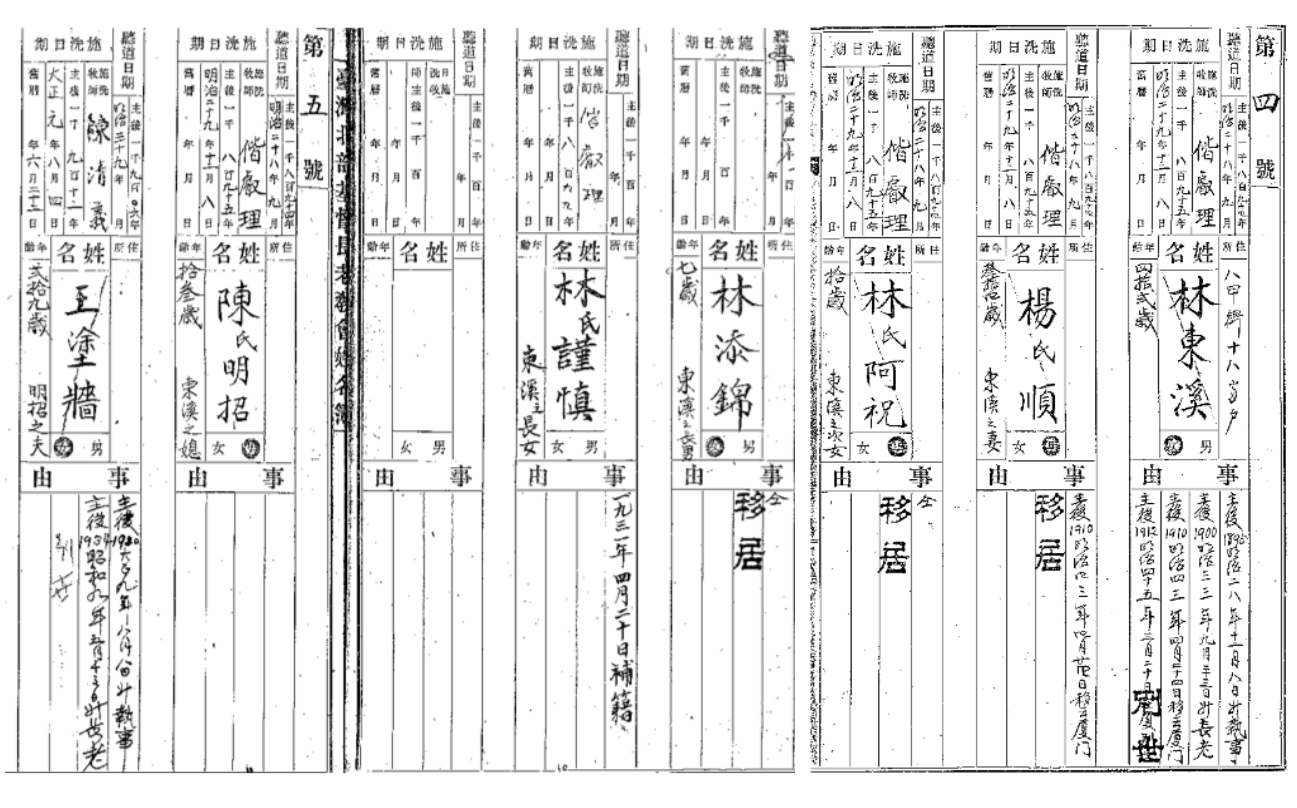 第四號
聽道日期
主後一千八百九十年
明治二十八年九月
施洗日期
施洗牧師 偕叡理
主後一千八百九十五年
明治二十九年十二月八日
舊曆 年 月 日
住所
姓名
林東溪
年齡
四拾弍歲
男 女
事由
主後1900明治三三年九月二十三日升長老
主後1910明治四三年四月二十四日移去廈门
主後1912明治四十五年三月二十日
別世
聽道日期
主後一千八百九十年
明治二十八年九月
施洗日期
施洗牧師 偕叡理
主後一千八百九十五年
明治二十九年十二月八日
舊曆 年 月 日
住所
姓名
楊氏順
年齡
東溪之妻
男 女
事由
移居
聽道日期
主後一千八百九十年
明治二十八年九月
施洗日期
施洗牧師 偕叡理
主後一千八百九十五年
明治二十九年十二月八日
舊曆 年 月 日
住所
姓名
林氏阿祝
年齡
拾歲
東溪之次女
男 女
事由
仝
移居
聽道日期
主後一千 百 年
年 月 日
施洗日期
施洗牧師
主後一千 百 年
年 月 日
舊曆 年 月 日
住所
姓名
林添錦
年齡
七歲
東溪之長男
男 女
事由
仝
移居
聽道日期
主後一千 百 年
年 月
施洗日期
施洗牧師 偕叡理
主後一千八百九年
年 月 日
舊曆 年 月 日
住所
姓名
林氏謹慎
年齡
東溪之長女
男 女
事由
一九三一年四月二十日補籍
聽道日期
施洗日期
姓名
男 女
事由
臺灣北部基督長老教會姓名簿
第五號
聽道日期
主後一千八百九十四年
明治二十八年九月
施洗日期
施洗牧師 偕叡理
主後一千八百九十五年
明治二十九年十二月八日
舊曆 年 月 日
住所
姓名
陳氏明招
年齡
拾叁歲
東溪之媳
男 女
事由
聽道日期
主後一千九百〇六年
明治三十九年 月
施洗日期
施洗牧師 陳清義
主後一千九百十二年
大正元年八月四日
舊曆 年六月二十二日
住所
姓名
王塗牆
年齡
弍拾九歲
明招之夫
男 女
事由
主後1920大正九年八月份升執事
主後1934昭和九年五月十三日升長老
別世